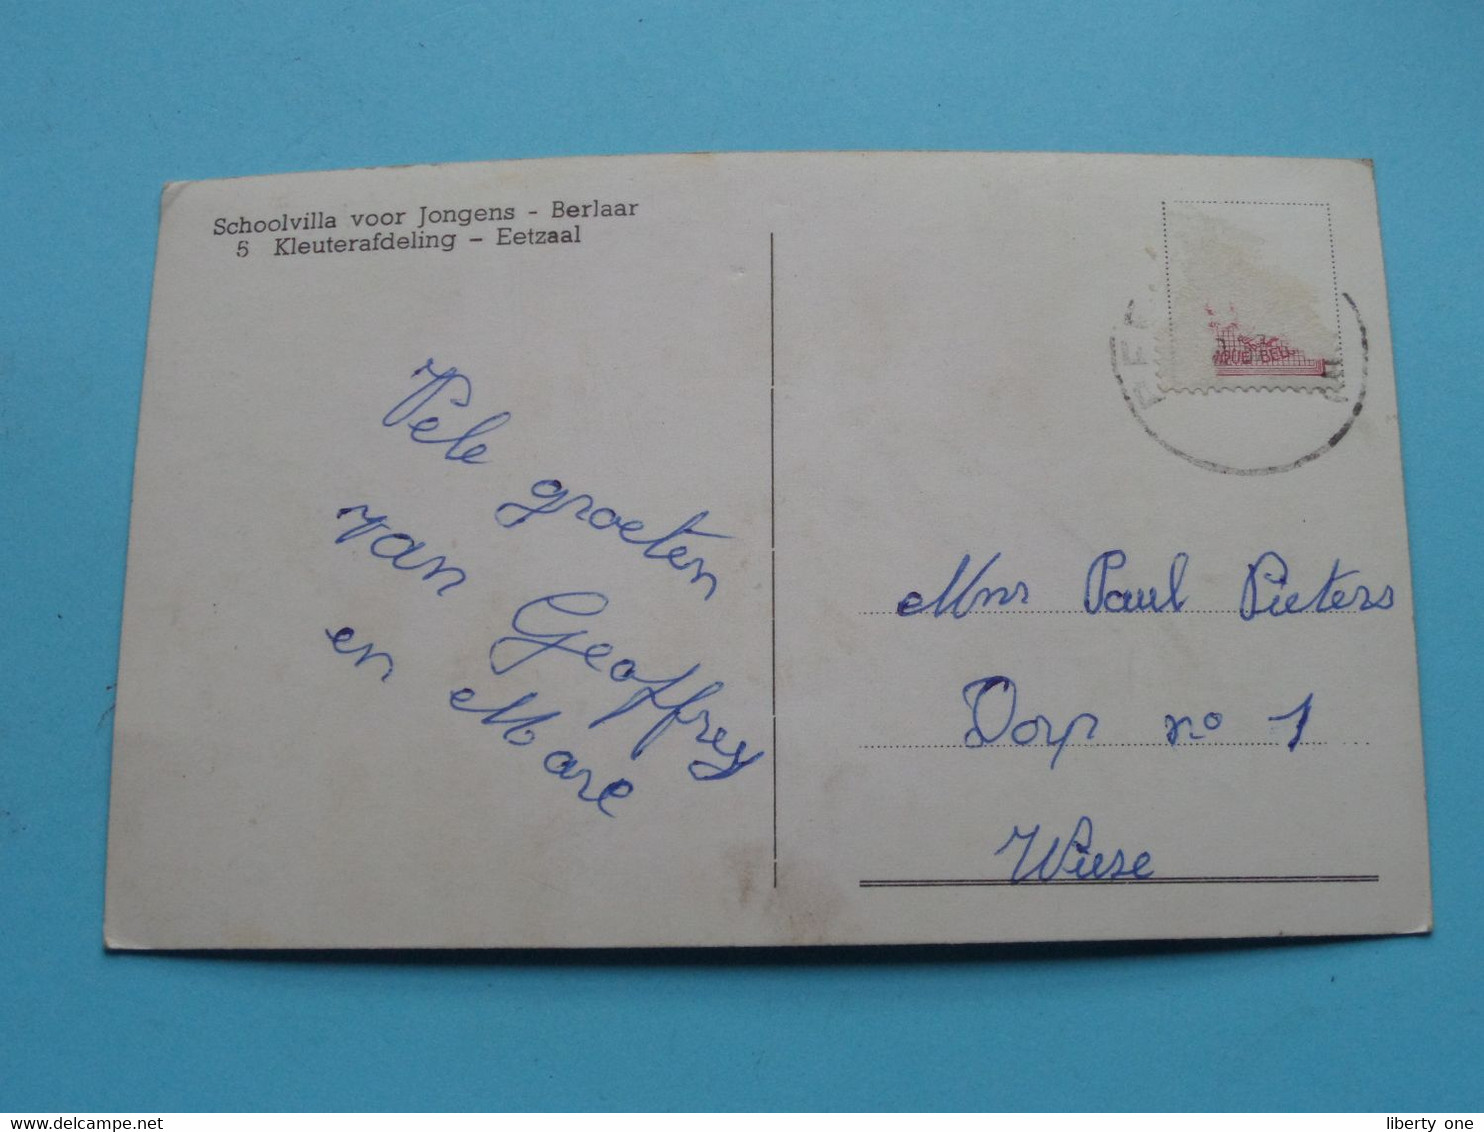 Schoolvilla voor Jongens - Berlaar
5 Kleuterafdeling - Eetzaal
Vele groeten
van Geoffrey
en Marc
Mnr Paul Pieters
Dorp no 1
Wieze
delcampe.net
liberty one